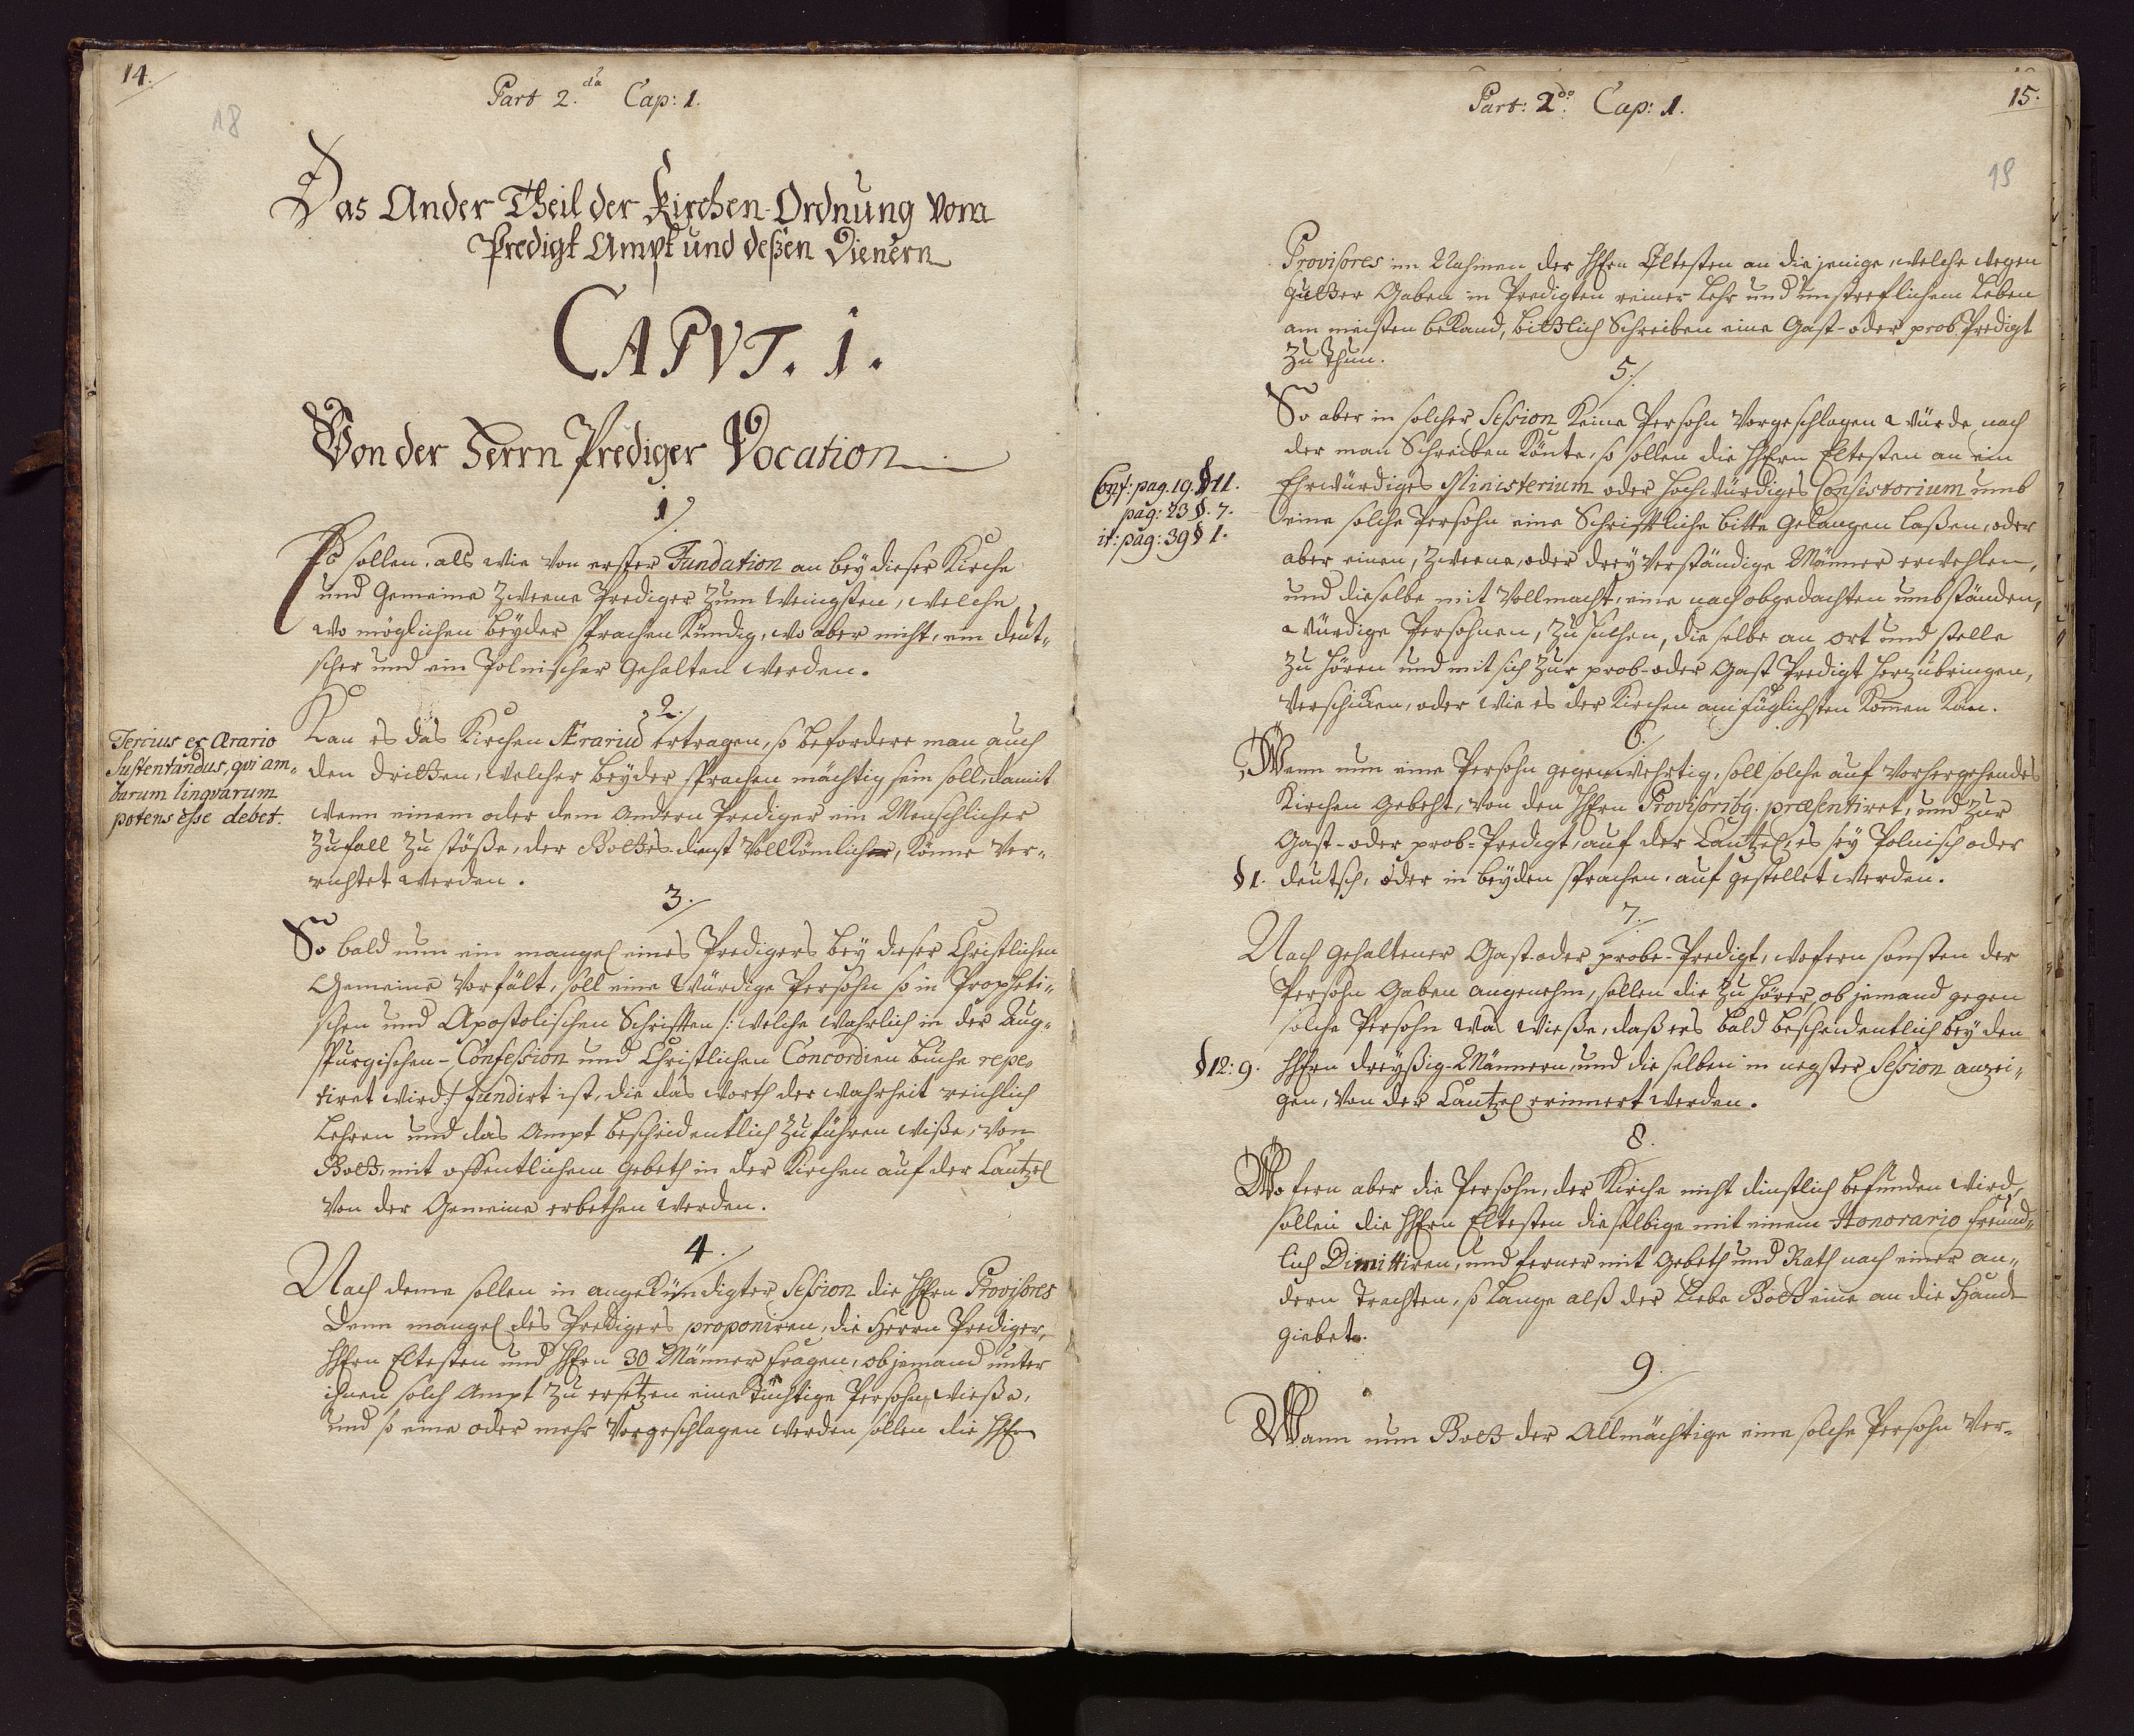 14.
18
Part 2.da Cap: 1.
Das Ander Theil der Kirchen-Ordnung vom
Predigt Ampt und deßen Dienern
CAPVT. 1.
Von der Herrn Prediger Vocation
1
Es sollen, als wie von erster Fundation an bey dieser Kirche
und Gemeine zweene Prediger zum wenigsten, welche
wo möglichen beyder sprachen kündig, wo aber nicht, ein deut-
scher und ein Polnischer gehalten werden.
2.
Tertius ex Ærario
sustentandus, qvi am-
barum lingvarum
potens esse debet.
Kan es das Kirchen Ærarium ertragen, so befordere man auch
den dritten, welcher beyder sprachen mächtig sein soll, damit
wenn einem oder dem andern Prediger ein Menschlicher
zufall zu stöße, der Gottes-dienst vollkömlich, könne ver-
richtet werden.
3.
So bald nun ein mangel eines Predigers bey dieser Christlichen
Gemeine vorfält, soll eine würdige Persohn so in Propheti-
schen und Apostolischen Schrifften /: welche wahrlich in der Aug-
spurgischen-Confession und Christlichen Concordien buche repe-
tiret wird :/ fundirt ist, die das worth der warheit reichlich
Lehren und das Ampt bescheidentlich zuführen wiße, von
Gott, mit offentlichem gebeth in der Kirchen auf der Cantzel
von der Gemeine erbethen werden.
4.
Nach deme sollen in angekündigter Session die HHern Provisores
Denn mangel des Predigers proponiren, die Herrn Prediger,
HHern Eltesten und HHern 30 Männer fragen, ob jemand unter
ihnen solch Ampt zu ersetzen eine tüchtige Persohn wieße,
und so eine oder mehr vorgeschlagen werden sollen die HHern
Part: 2do. Cap: 1.
15.
19
Provisores im Nahmen der HHern Eltesten an die jenige, welche wegen
gutter Gaben in Predigten reiner Lehr und unstreflichem Leben
am meisten bekand, bittlich Schreiben eine Gast- oder prob Predigt
zu thun.
5.
So aber in solcher Session keine Persohn vorgeschlagen würde nach
der man Schreiben könte, so sollen die HHern Eltesten an ein
Conf: pag. 19. § 11.
pag: 23 §. 7.
it: pag: 39 § 1.
Ehrwürdiges Ministerium oder hochwürdiges Consistorium umb
eine solche Persohn eine Schrifftliche bitte gelangen laßen, oder
aber einen, zweene, oder drey verständige Männer erwehlen,
und dieselbe mit vollmacht, eine nach obgedachten umbständen,
würdige Persohnen, zu suchen, die selbe an ort und stelle
zu hören und mit sich zur prob- oder Gast Predigt herzubringen,
verschicken, oder wie es der Kirchen am füglichsten kom̄en kan.
6.
Wenn nun eine Persohn gegenwehrtig, soll solche auf vorhergehendes
Kirchen gebeht, von den HHern Provisoribg. præsentiret, und zur
Gast- oder prob-Predigt, auf der Cantzel, es sey Polnisch oder
§ 1. deutsch, oder in beyden sprachen, auf gestellet werden.
7.
Nach gehaltener Gast- oder probe-Predigt, wofern sonsten der
Persohn Gaben angenehm, sollen die zu hörer, ob jemand gegen
solche Persohn was wieße, daß ers bald bescheidentlich bey den
§ 12: 9. HHern dreyßig-Männern, und die selben in negster Session anzei-
gen, von der Cantzel erinnert werden.
8.
Wo fern aber die Persohn, der Kirche nicht dinstlich befunden wird,
sollen die HHern Eltesten dieselbige mit einem Honorario freund-
lich Dimittiren, und ferner mit gebeth und Rath nach einer an-
dern trachten, so lange alß der liebe Gott eine an die Hand
giebet.
9.
Wann nun Gott der Allmächtige eine solche Persohn ver-